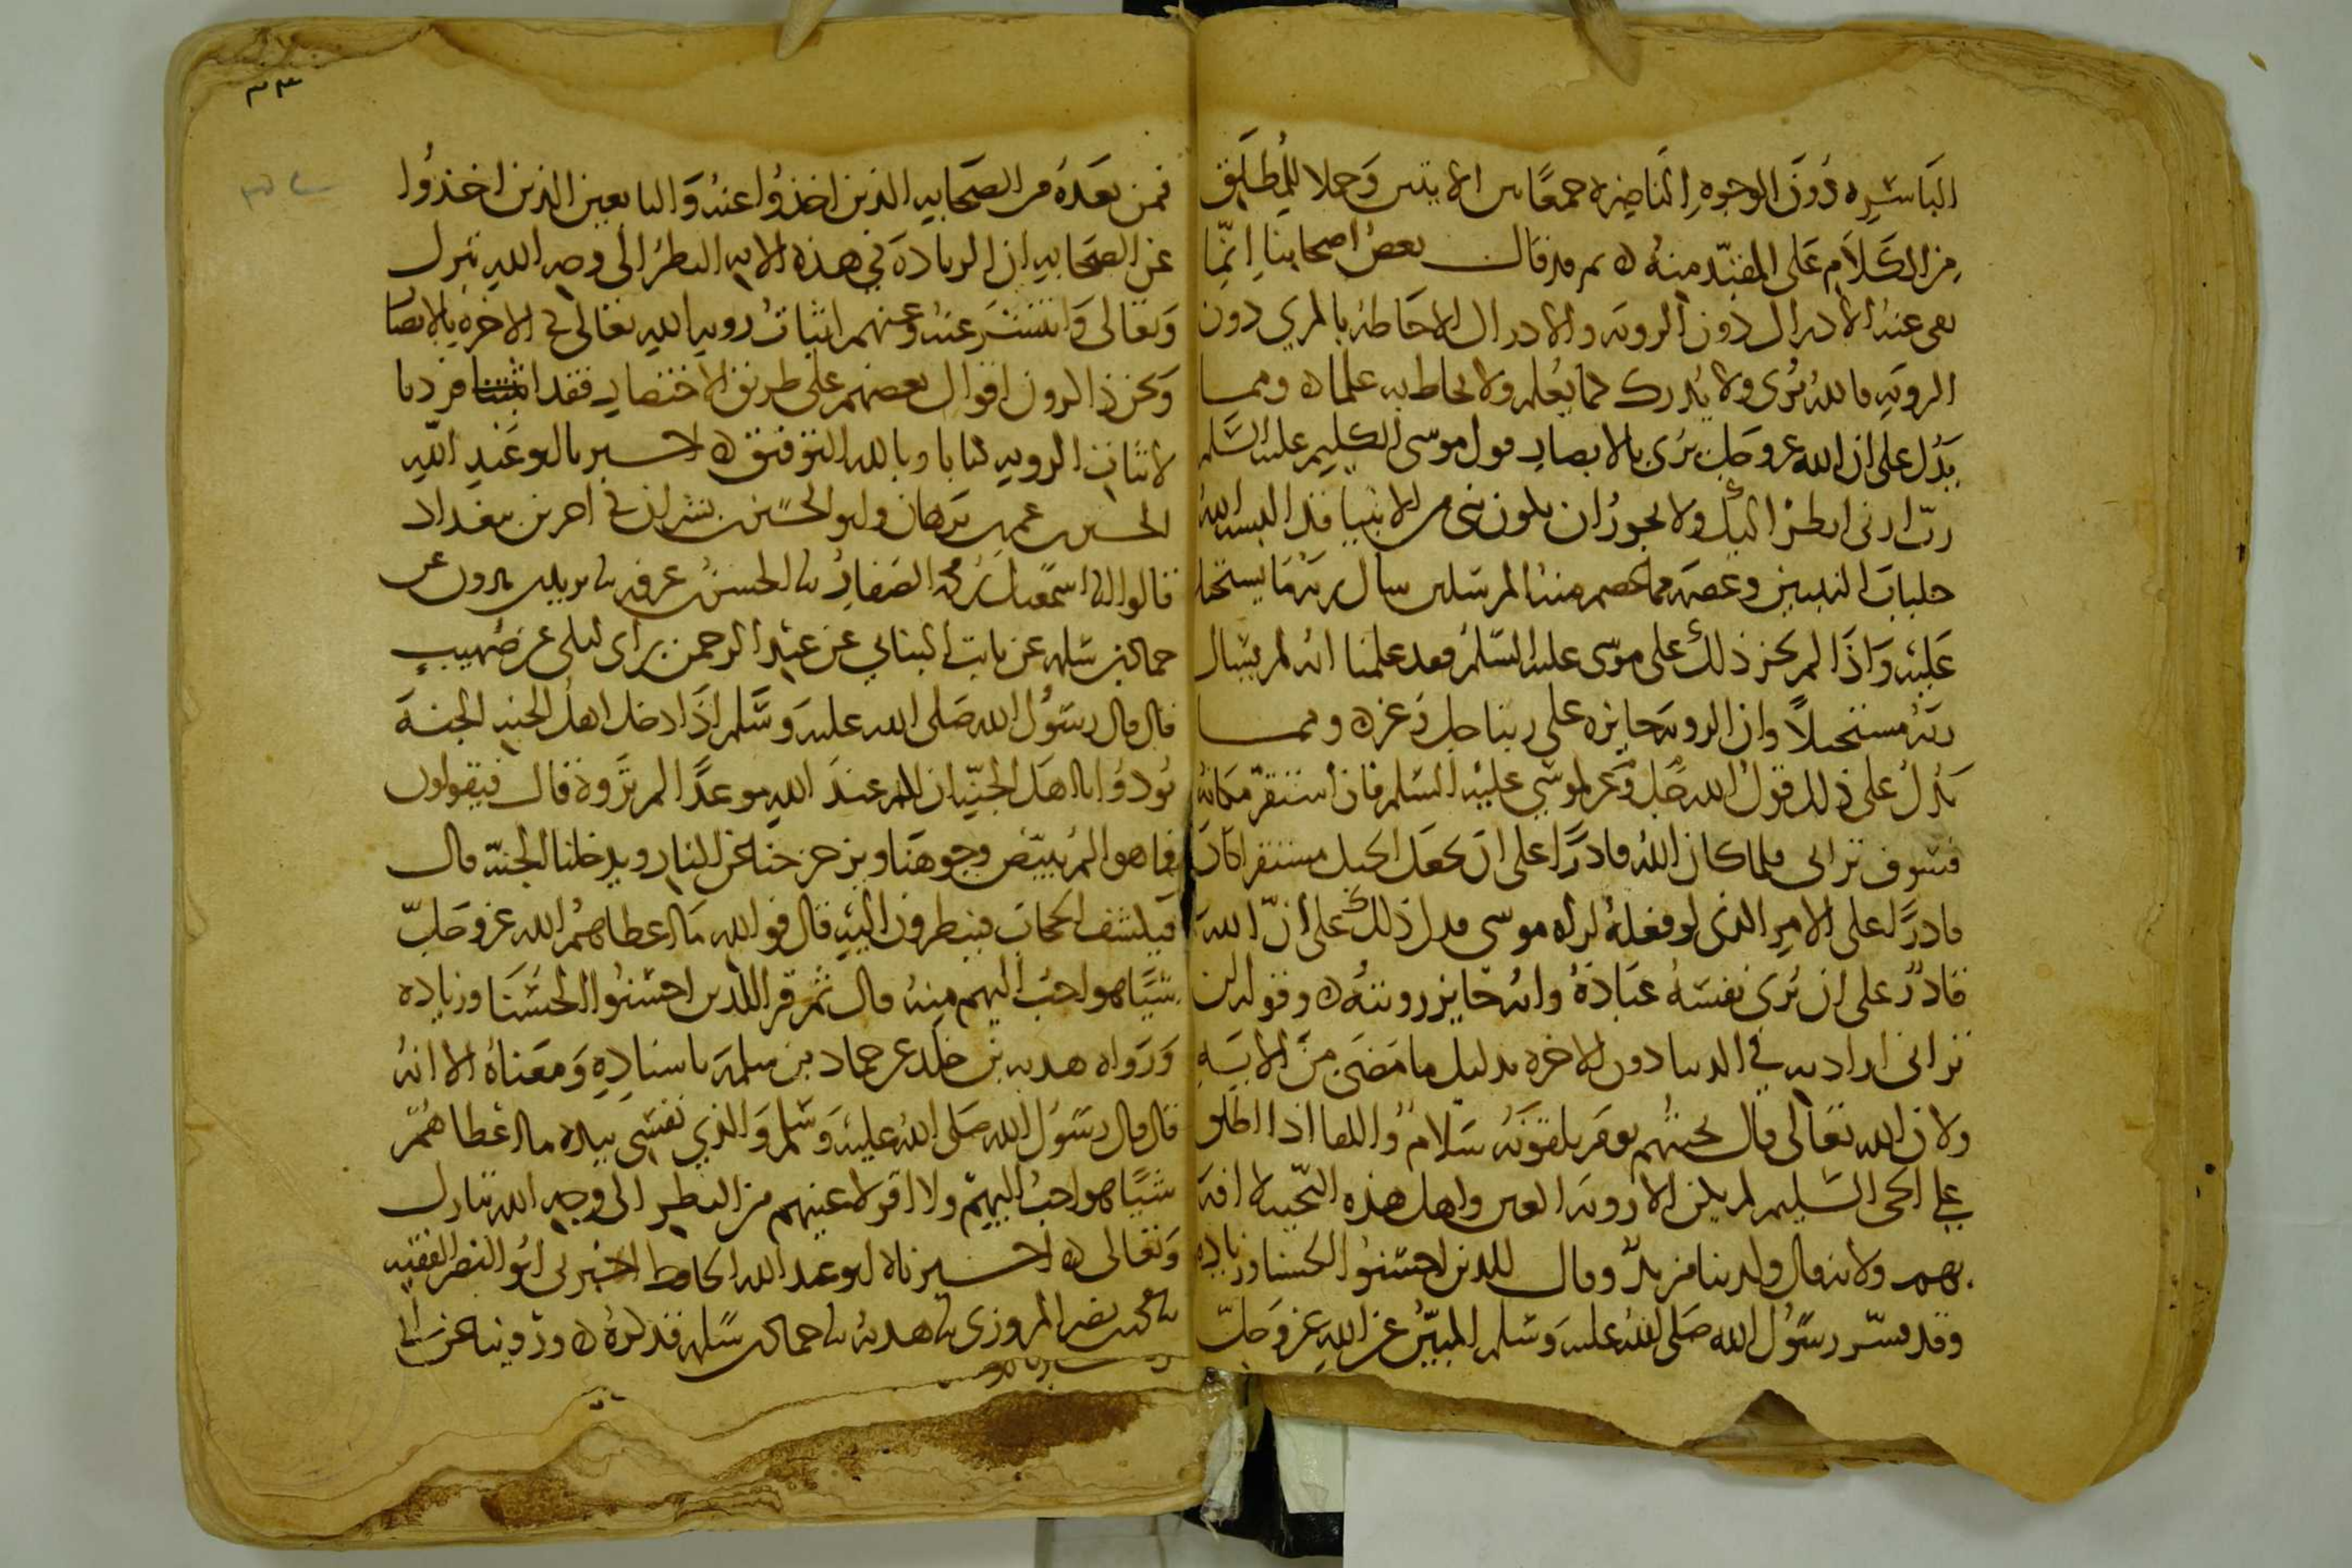 الباسرة دون الوجوه الناضرة جمعا بين الايتين وحملا للمطلق
من الكلام على المقيد منه ثم قد قال بعض اصحابنا انما
نفى عنه الادراك دون الروية والادراك الاحاطة بالمري دون
الروية فالله يرى ولا يدرك كما يعلم ولا يحاط به علما ومما
يدل على ان الله عز وجل يرى بالابصار قول موسى الكليم عليه السلم
رب ارنى انظر اليك ولا يجوز ان يكون نبى من الانبيا قد البسه الله
جلباب النبيين وعصمه مما عصم منه المرسلين سال ربه ما يستحيل
عليه واذا لم يجز ذلك على موسى عليه السلم فقد علمنا انه لم يسال
ربه مستحيلا وان الروية جايزة على ربنا جل وعز ومما
يدل على ذلك قول الله جل وعز لموسي عليه السلم فان استقر مكانه
فسوف ترانى فلما كان الله قادرا على ان يجعل الجبل مستقرا كان
قادرا على الامر الذى لو فعله لراه موسى فدل ذلك على ان الله
قادر على ان يرى نفسه عباده وانه جايز رويته وقوله لن
ترانى اراد به في الدنيا دون الاخره بدليل ما مضى من الاية
ولان الله تعالى قال تحيتهم يوم يلقونه سلام واللقا اذا اطلق
علي الحى السليم لم يكن الا روية العين واهل هذه التحية لا افة
بهم ولانه قال ولدينا مزيد وقال للذين احسنوا الحسنا وزيادة
وقد فسر رسول الله صلى الله عليه وسلم المبين عن الله عز وجل
٣٣
فمن بعده من الصحابة الذين اخذوا عنه والتابعين الذين اخذوا
عن الصحابة ان الزيادة في هذه الاية النظر الى وجه الله تبرك
وتعالى وانتشر عنه وعنهم اثبات روية الله تعالى في الاخرة بالابصار
ونحن ذاكرون اقوال بعضهم على طريق الاختصار فقد افردنا
لاثبات الروية كتابا وبالله التوفيق اخبرنا ابو عبد الله
الحسين بن عمر بن برهان وابو الحسين بن بشران في اخرين ببغداد
قالوا انا اسمعيل بن محمد الصفار نا الحسن بن عرفة نا يزيد بن هرون عن
حماد بن سلمة عن ثابت البناني عن عبد الرحمن بن ابى ليلى عن صهيب
قال قال رسول الله صلى الله عليه وسلم اذا دخل اهل الجنة الجنة
نودوا يا اهل الجنة ان لكم عند الله موعدا لم تروه قال فيقولون
فما هو الم يبيض وجوهنا ويزحزحنا عن النار ويدخلنا الجنة قال
فيكشف الحجاب فينظرون اليه قال فوالله ما اعطاهم الله عز وجل
شيا هو احب اليهم منه قال ثم قرا للذين احسنوا الحسنا وزيادة
ورواه هدبة بن خلد عن حماد بن سلمة باسناده ومعناه الا انه
قال قال رسول الله صلى الله عليه وسلم والذي نفسي بيده ما اعطاهم
شيا هو احب اليهم ولا اقر لاعينهم من النظر الى وجه الله تبارك
وتعالى اخبرناه ابو عبد الله الحافظ اخبرنى ابو النضر الفقيه
نا محمد بن نصر المروزى نا هدبة نا حماد بن سلمة فذكره وروينا عن ابى